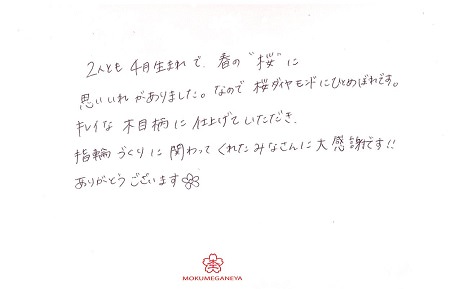 2人とも4月生まれで、春の"桜"に
思いいれがありました。なので桜ダイヤモンドにひとめぼれです。
キレイな木目柄に仕上げていただき、
指輪づくりに関わってくれたみなさんに大感謝です!!
ありがとうございます
MOKUMEGANEYA